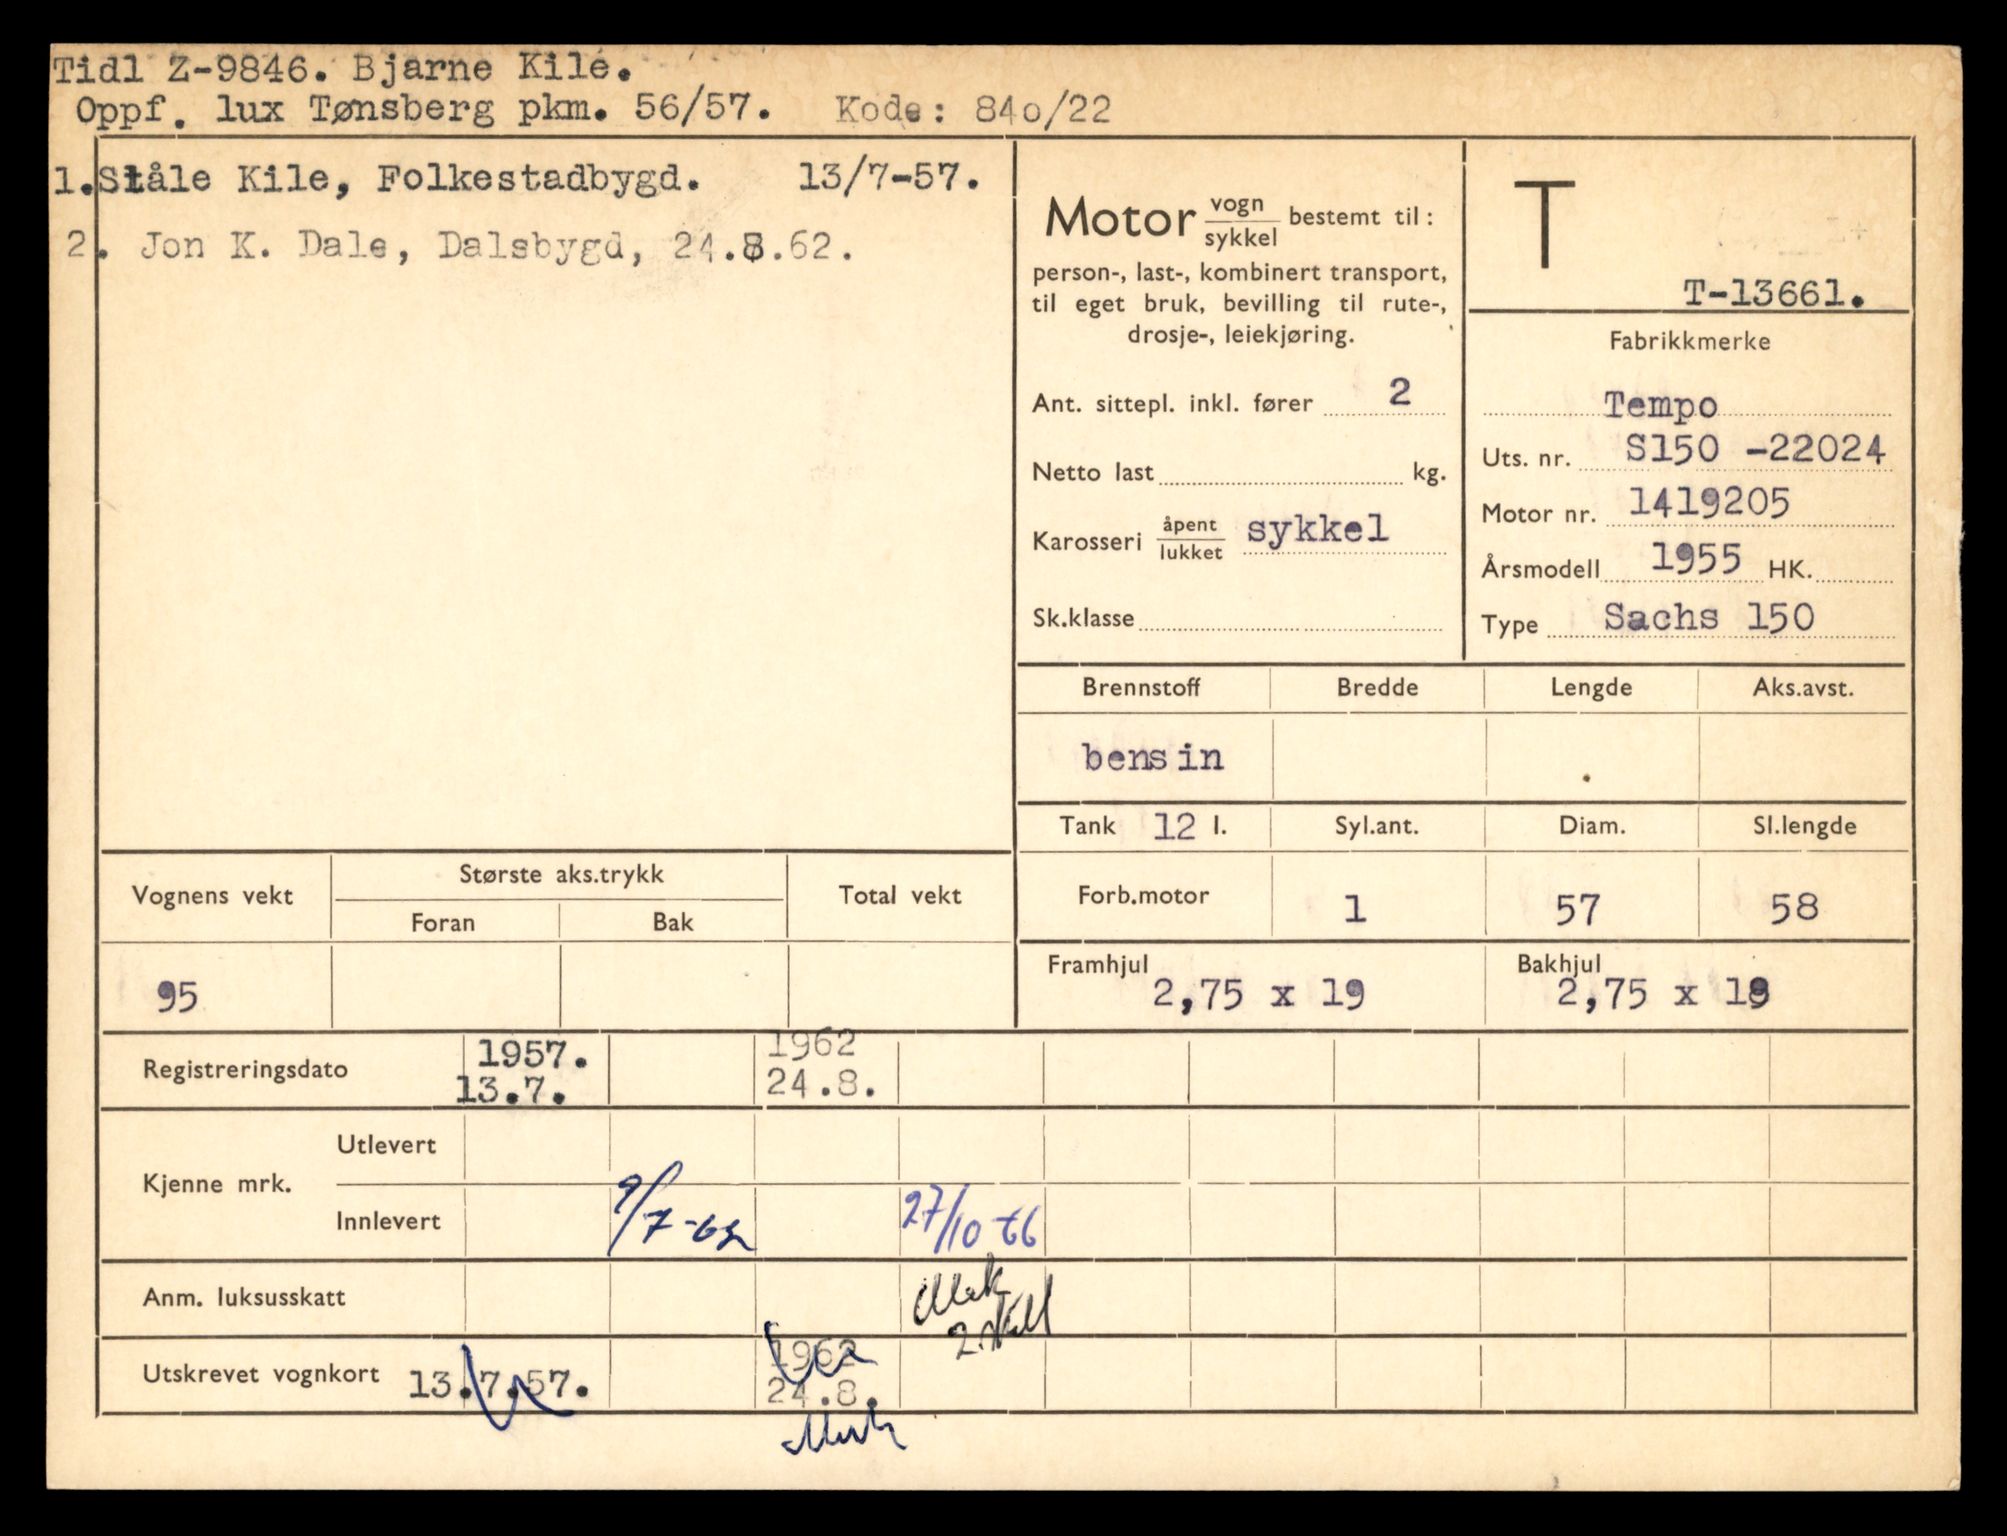 Tidl Z-9846. Bjarne Kile.
Oppf. lux Tønsberg pkm. 56/57. Kode: 84o/22
1. Ståle Kile, Folkestadbygd. 13/7-57.
2. Jon K. Dale, Dalsbygd, 24.8.62.
Motor vogn/sykkel bestemt til:
person-, last-, kombinert transport,
til eget bruk, bevilling til rute-,
drosje-, leiekjøring.
Ant. sittepl. inkl. fører 2
Netto last kg.
Karosseri åpent/lukket sykkel
Sk.klasse
T
T-13661.
Fabrikkmerke
Tempo
Uts. nr. S150 -22024
Motor nr. 1419205
Årsmodell 1955 HK.
Type Sachs 150
Brennstoff Bredde Lengde Aks.avst.
bensin
Tank 12 l. Syl.ant. Diam. Sl.lengde
Forb.motor 1 57 58
Framhjul 2,75 x 19
Bakhjul 2,75 x 19
Vognens vekt Største aks.trykk Total vekt
Foran Bak
95
Registreringsdato 1957. 1962
13.7. 24.8.
Kjenne mrk.
Utlevert
Innlevert 9/7-62 27/10-66
Anm. luksusskatt
Utskrevet vognkort 13.7.57. 1962
24.8.